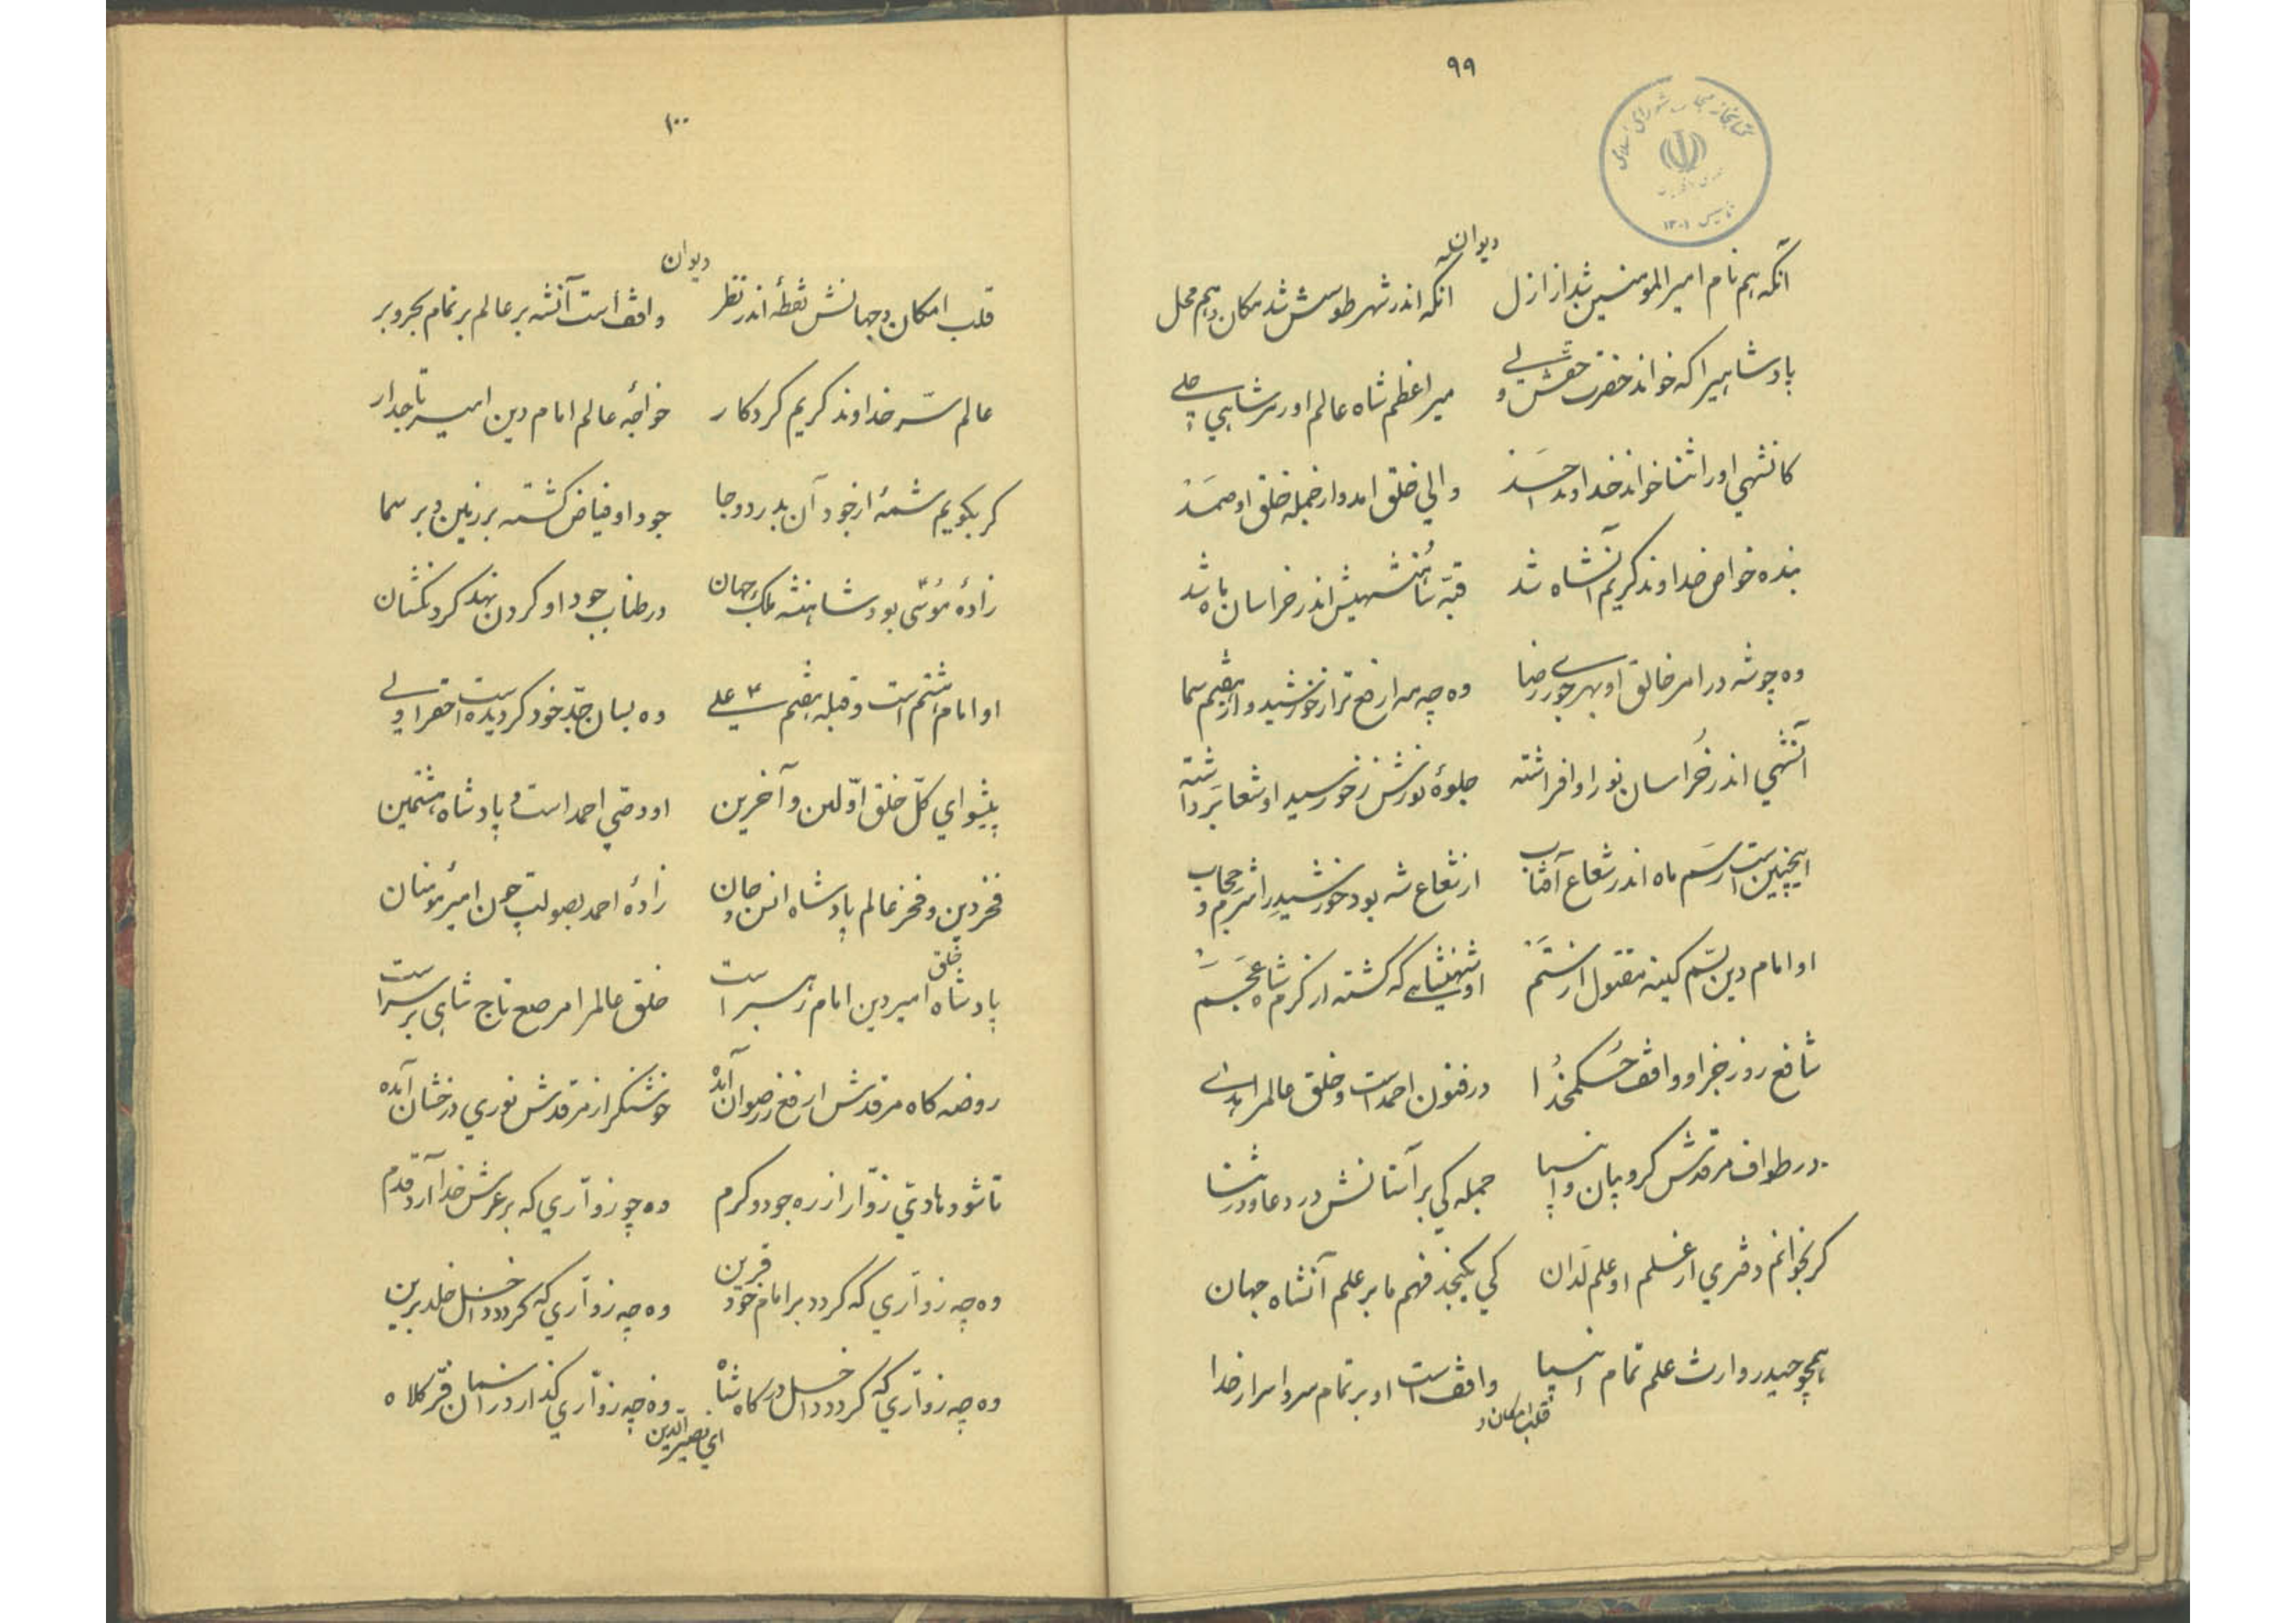 ۹۹
کتابخانه مجلس شورای اسلامی
تأسیس ۱۳۰۱
دیوان
آنکه هم نام امیرالمومنین شد از ازل آنکه اندر شهر طوسش شد مکان و هم محل
پادشاهیرا که خواند حضرت حقش ولی میر اعظم شاه عالم اورمرشاهی جلی
کانشهی اورا ثنا خواند خداوند احد والی خلق امد و از جمله خلق او صمد
بنده خواص خداوند کریم آنشاه شد قبه شاهنشهیش اندر خراسان باه شد
وه چو شه در امر خالق او بهر جوری رضا وه چه مه ارفع تر از خورشید و از هفتم سما
آنشهی اندر خراسان نور او افراشته جلوهٔ نورش ز خورسید او شعا برداشته
اینچنین است رسم ماه اندر شعاع آفتاب از شعاع شه بود خورشید را شرم و حجاب
او امام دین بسم کینه مقتول از ستم او شهنشاهی که گشته از کرم شاه عجم
شافع روز جزا و واقف حکم خدا در فنون احمد است و خلق عالمرا
در طواف مرقدش کروبیان و انبیا جمله کی بر آستانش در دعا و در ثنا
کر بخوانم دفتری از علم او علم لدان کی بکنجد فهم ما بر علم آنشاه جهان
همچو حیدر وارث علم تمام انبیا واقف است او بر تمام سر و اسرار خدا
قلب امکان و
۱۰۰
دیوان
قلب امکان و جهانش نقطهٔ اندر نظر واقف است آنشه بر عالم بر تمام بحر و بر
عالم سر خداوند کریم کردکار خواجهٔ عالم امام دین امیر تاجدار
کر بکویم شمهٔ از خود آن بدر دوجا جود او فیاض کشته بر زمین و بر سما
زادهٔ موسی بود شاهنشه ملک جهان در طناب جود او کردن نهد کردنکشان
او امام هشتم است و قبله هفتم علی وه بسان جدّ خود کردیده است او
پیشوای کلّ خلق اوّلین و آخرین او وصی احمد است و پادشاه هشتمین
فخر دین و فخر عالم پادشاه انس و جان زادهٔ احمد بصولت چون امیر مؤمنان
پادشاه خلق امیر دین امام رهبر است خلق عالمرا مرصع تاج شاهی بر سر است
روضه کاه مرقدش ارفع ز رضوان آمده خوشنکر از مرقدش نوری درخشان آمده
تا شود هادی زوّار از ره جود و کرم وه چو زوّاری که بر عرش خدا آرد قدم
وه چه زوّاری که کردد بر امام خود قرین وه چه زوّاری که کردد داخل خلد برین
وه چه زوّاری که کردد داخل درکاه شاه وه چه زوّاری کذارد در آستان فرّ کلاه
ای نصیرالدین